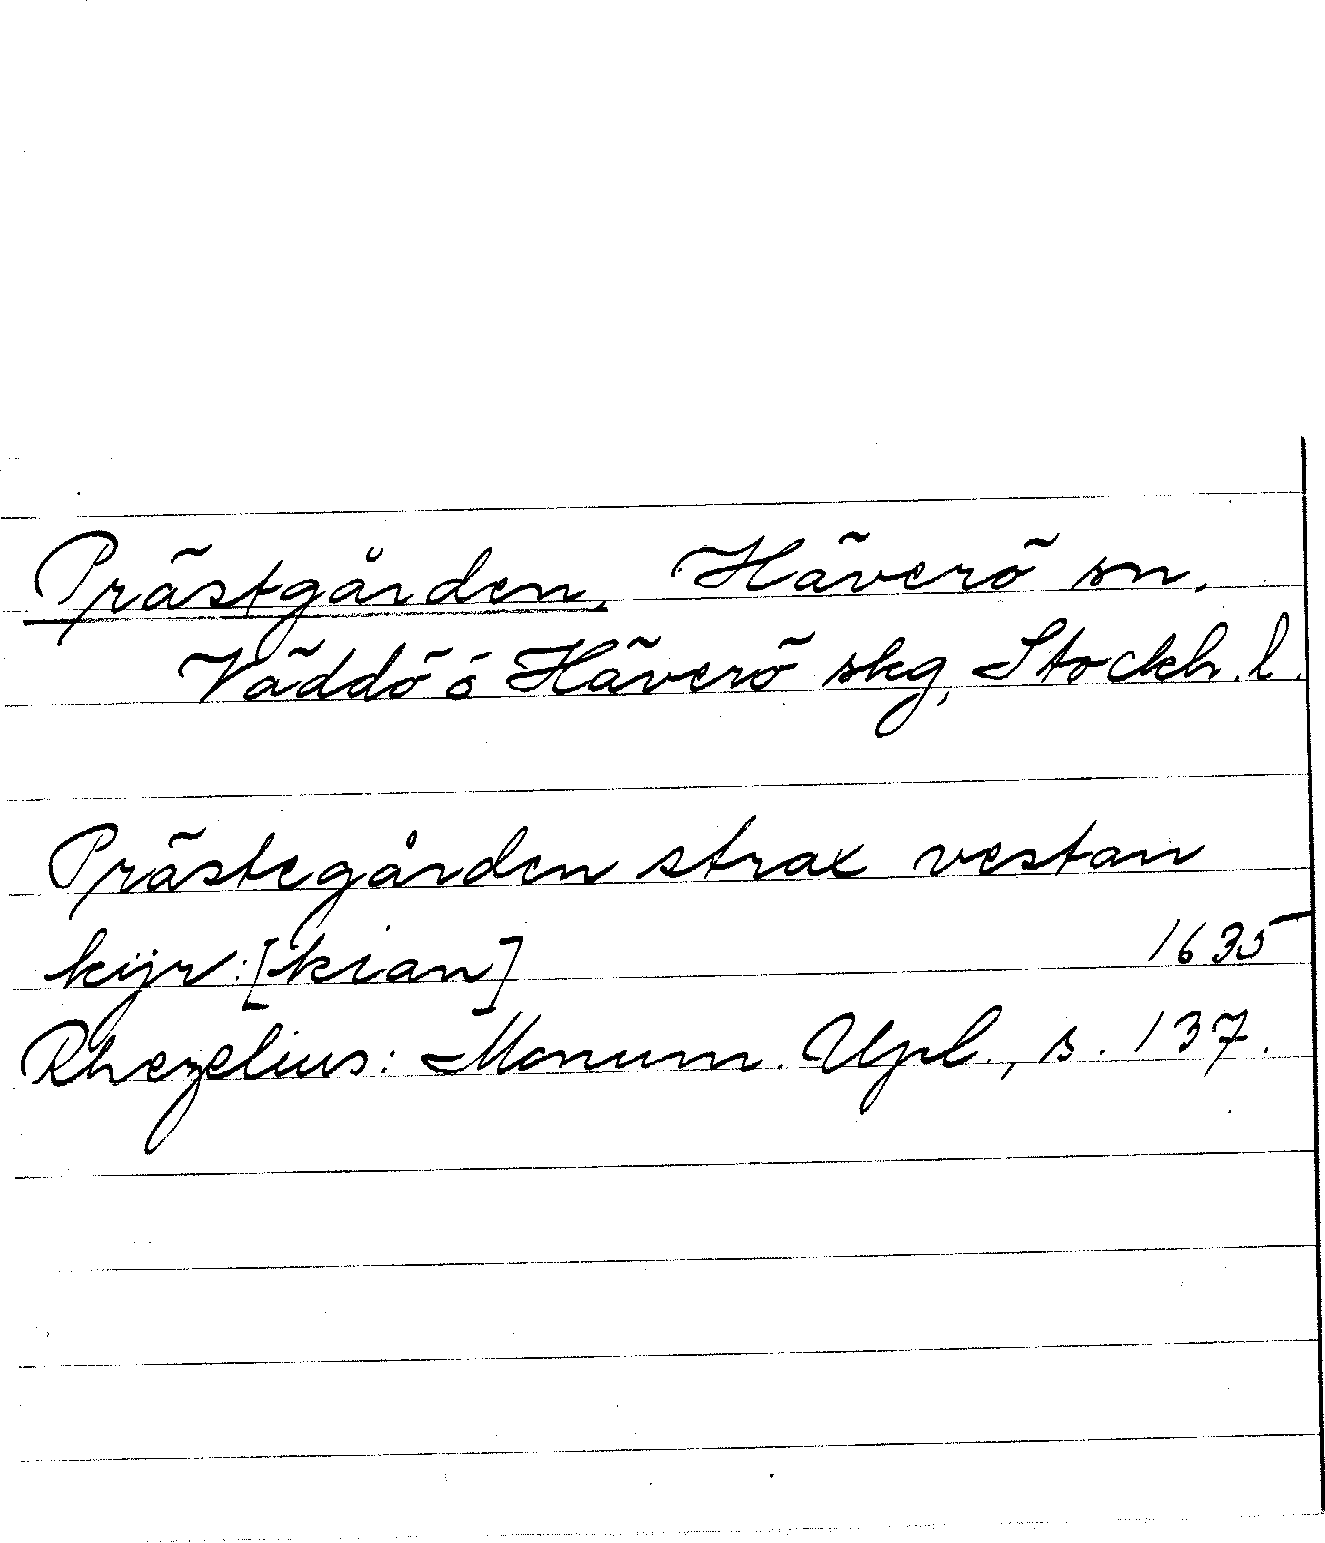 Prästgården, Häverö sn.
Väddö ó Häverö skg, Stockh. l.
Prästegården strax vestan
kijr:[kian] 1635
Rhezelius: Monum. Upl., s. 137.